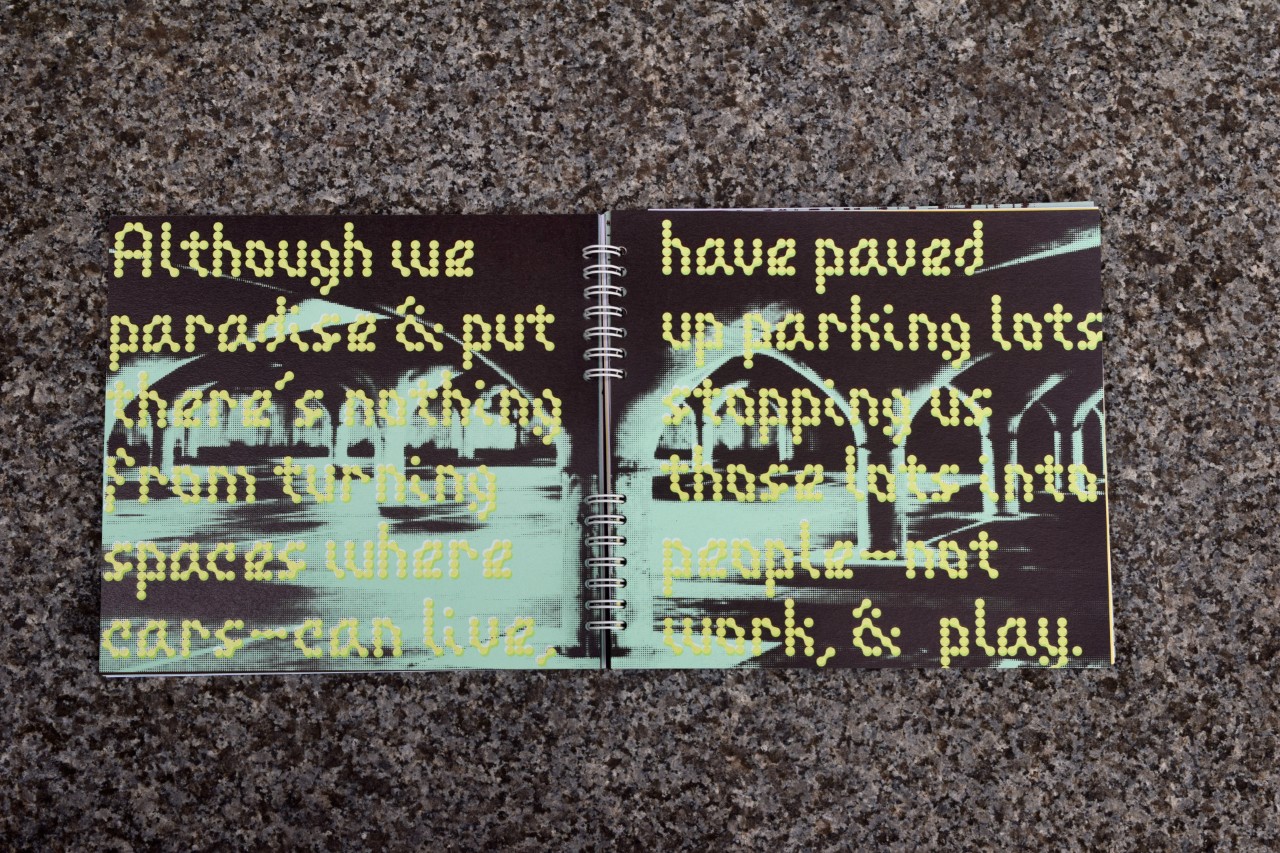 Although we have paved
paradise & put up parking lots
there's nothing stopping us
from turning those lots into
spaces where people—not
cars—can live, work, & play.